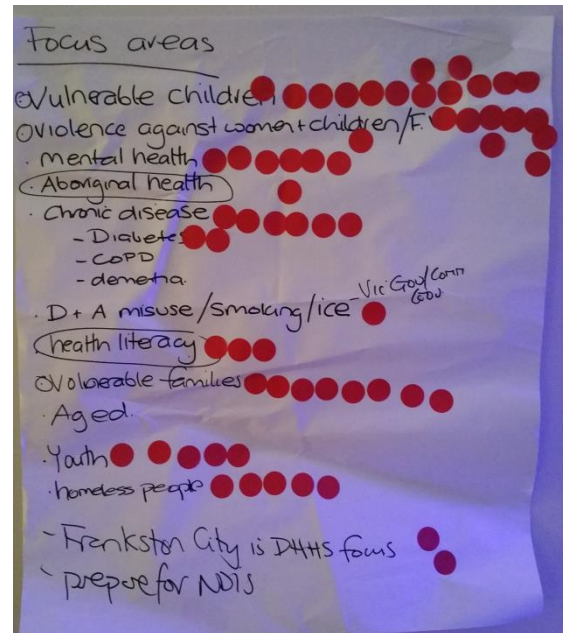 Focus areas
Vulnerable children
violence against women + children/F.V
· mental health
· Aboriginal health
· Chronic disease
- Diabetes
- COPD
- demetia.
· D + A misuse/smoking/ice - Vic Gov/Comm
Gov.
health literacy
Volnerable families
· Aged.
· Youth
· homeless people
- Frankston City is DHHS focus
- prepare for NDIS